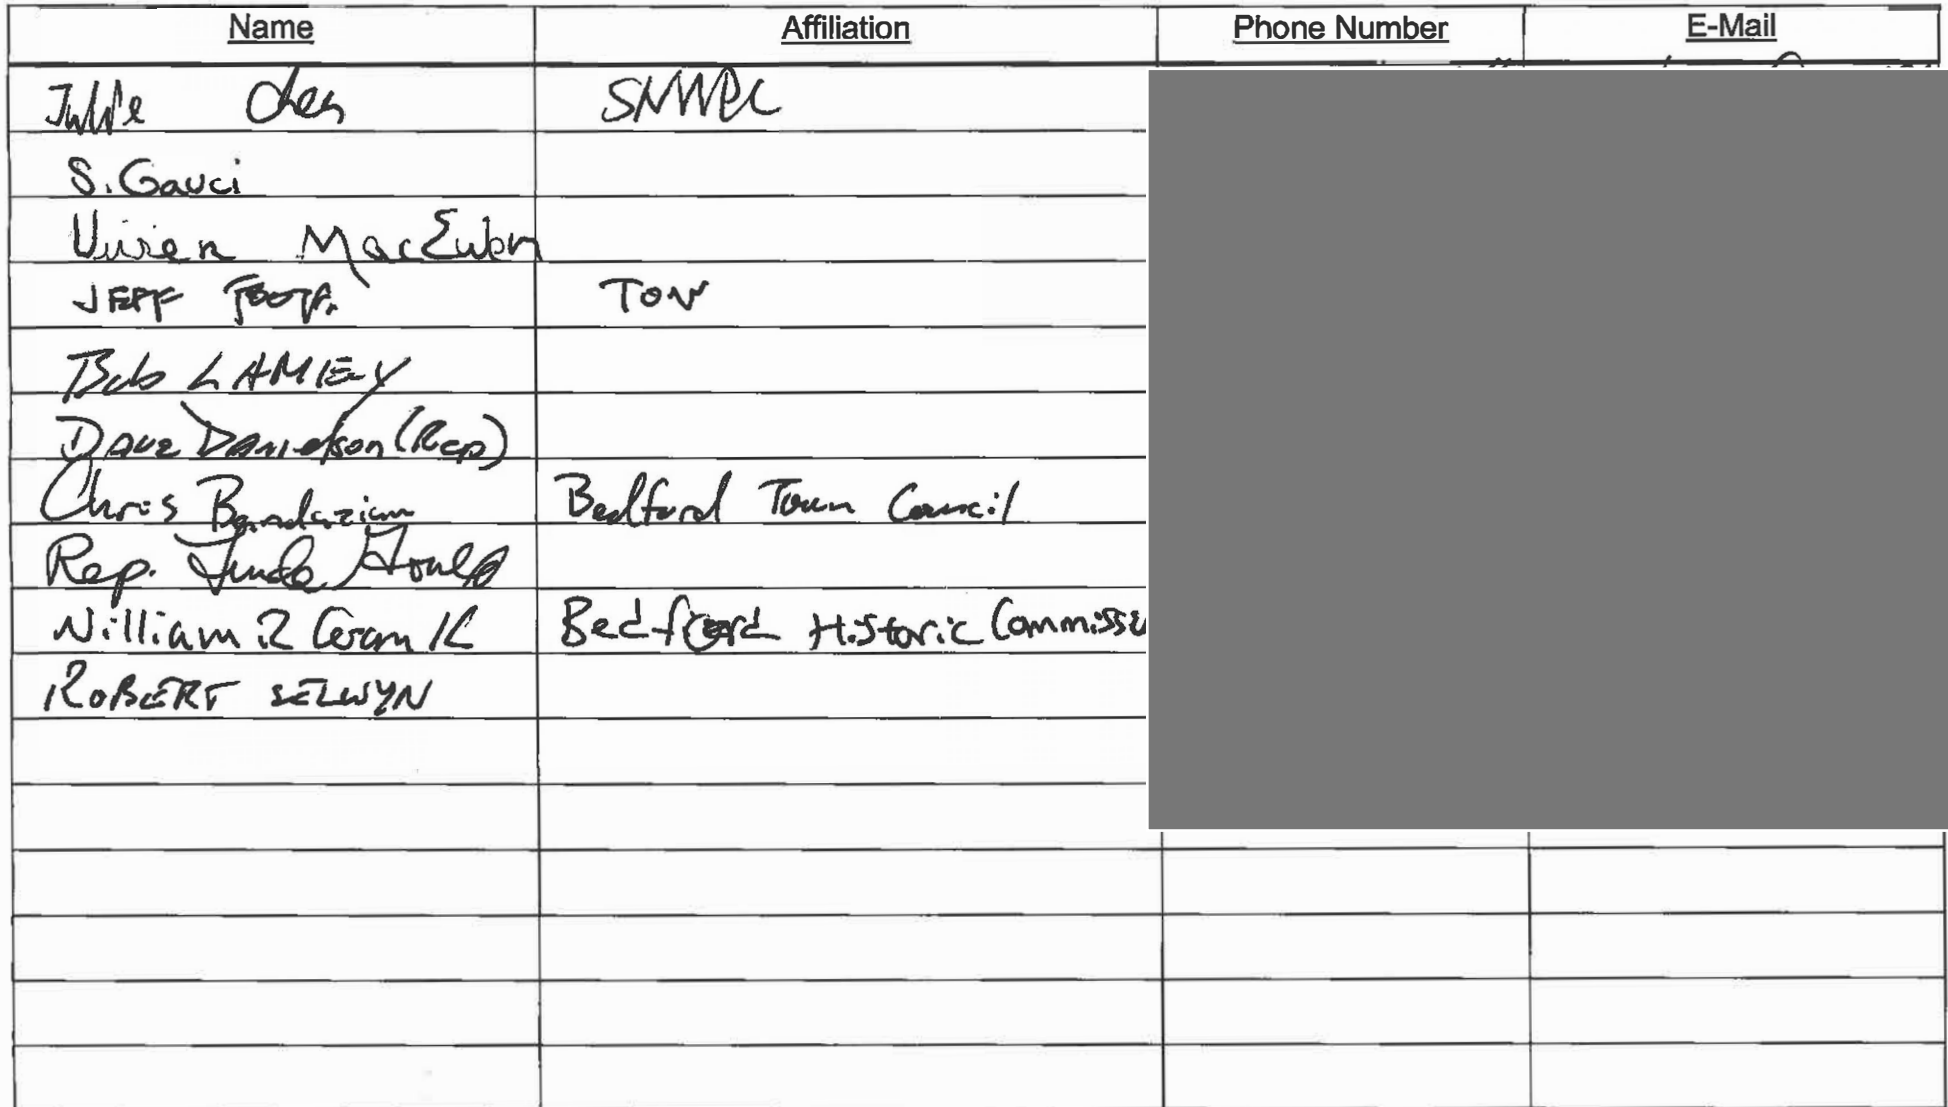 Name Affiliation Phone Number E-Mail
Julie Chen SNHPC
S. Gauci
Vivien MacEwen
JEFF
Bob LAMIEY
Dave Danielson (Rep)
Chris Bandazian Bedford Town Council
Rep. Linda Gould
William R Bedford Historic Commissi
ROBERT SELWYN